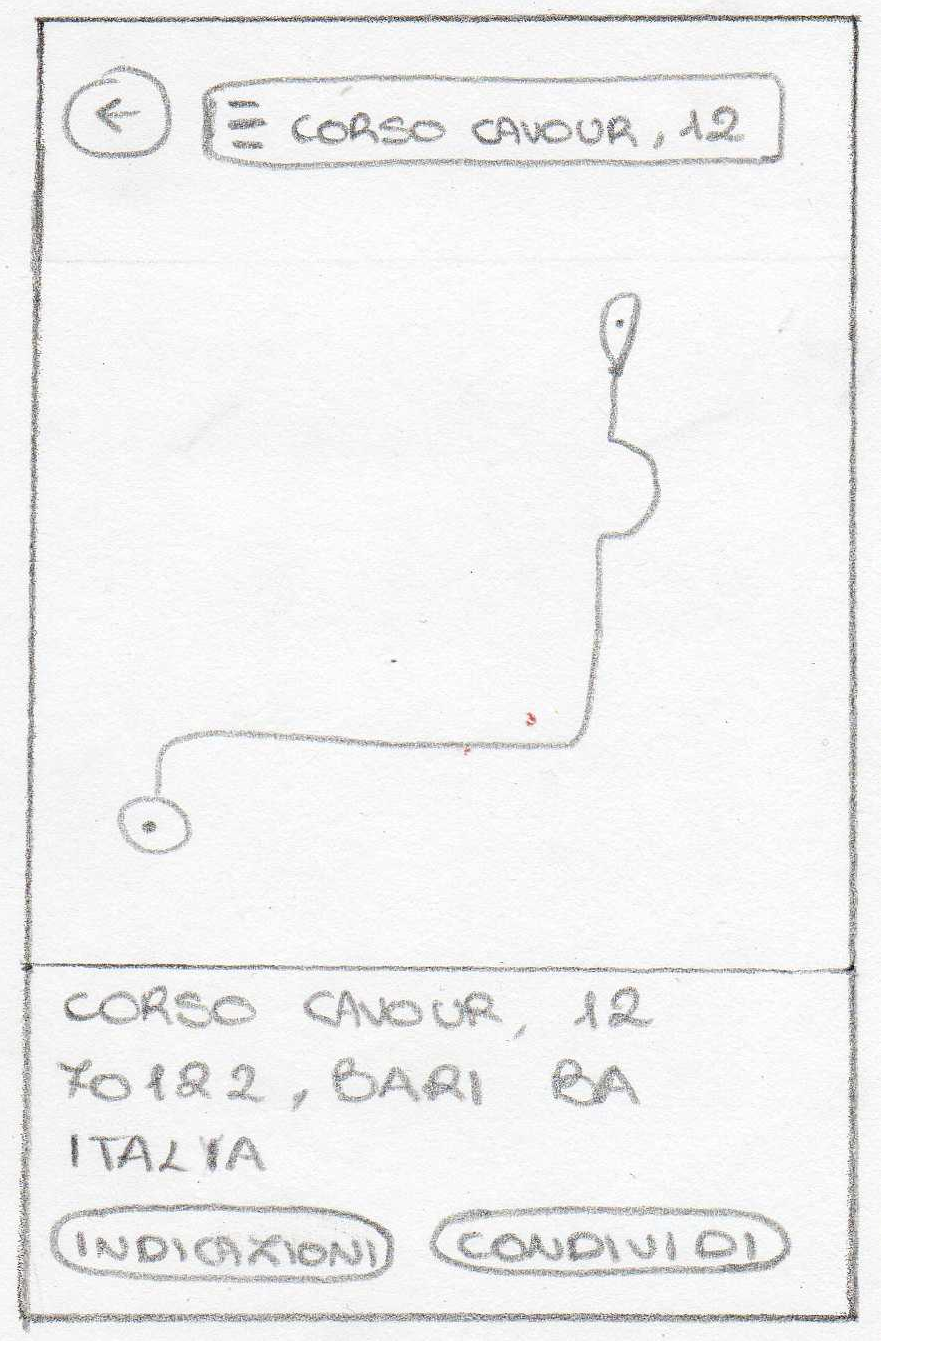 CORSO CAVOUR, 12
CORSO CAVOUR, 12
70122, BARI BA
ITALIA
INDICAZIONI
CONDIVIDI